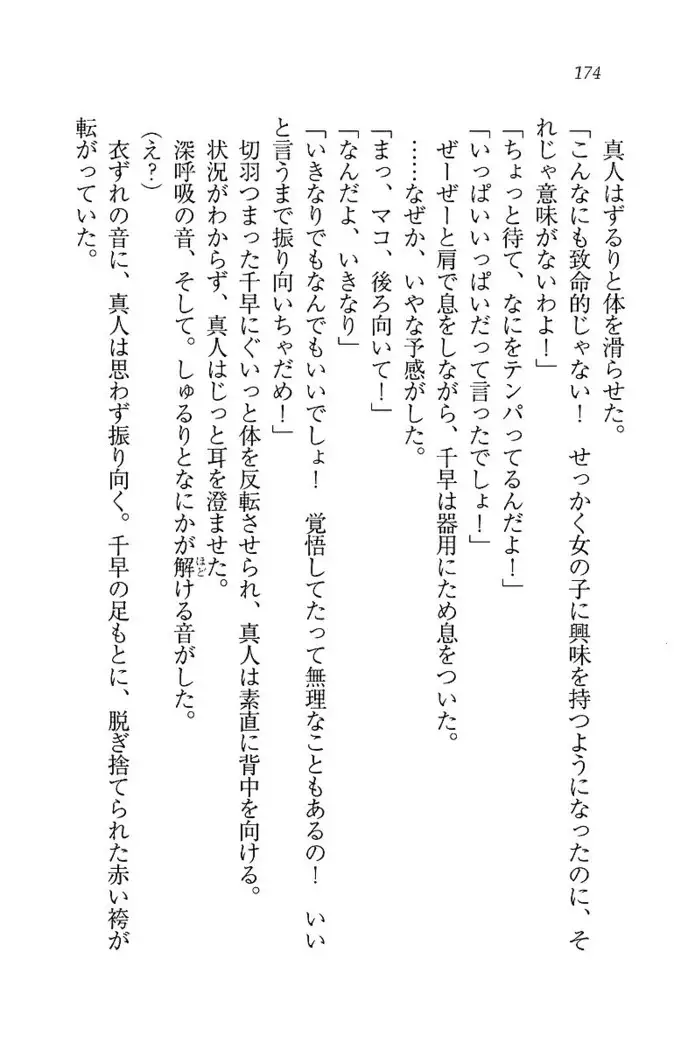 174
真人はずるりと体を滑らせた。
「こんなにも致命的じゃない！　せっかく女の子に興味を持つようになったのに、そ
れじゃ意味がないわよ！」
「ちょっと待て、なにをテンパってるんだよ！」
「いっぱいいっぱいだって言ったでしょ！」
ぜーぜーと肩で息をしながら、千早は器用にため息をついた。
……なぜか、いやな予感がした。
「まっ、マコ、後ろ向いて！」
「なんだよ、いきなり」
「いきなりでもなんでもいいでしょ！　覚悟してたって無理なこともあるの！　いい
と言うまで振り向いちゃだめ！」
切羽つまった千早にぐいっと体を反転させられ、真人は素直に背中を向ける。
状況がわからず、真人はじっと耳を澄ませた。
深呼吸の音、そして。しゅるりとなにかが解ほどける音がした。
（え？）
衣ずれの音に、真人は思わず振り向く。千早の足もとに、脱ぎ捨てられた赤い袴が
転がっていた。